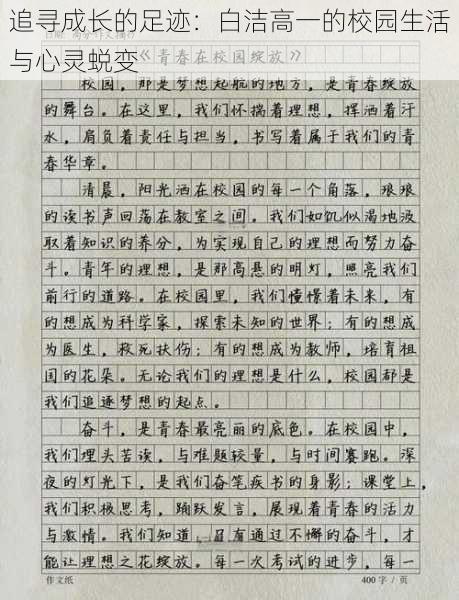 追寻成长的足迹：白洁高一的校园生活
与心灵蜕变
《青春在校园绽放》
校园，那是梦想起航的地方，是青春绽放
的舞台。在这里，我们怀揣着理想，挥洒着汗
水，肩负着责任与担当，书写着属于我们的青
春华章。
清晨，阳光洒在校园的每一个角落，琅琅
的读书声回荡在教室之间。我们如饥似渴地汲
取着知识的养分，为实现自己的理想而努力奋
斗。青年的理想，是那高悬的明灯，照亮我们
前行的道路。在校园里，我们憧憬着未来，有
的想成为科学家，探索未知的世界；有的想成
为医生，救死扶伤；有的想成为教师，培育祖
国的花朵。无论我们的理想是什么，校园都是
我们追逐梦想的起点。
奋斗，是青春最亮丽的底色。在校园中，
我们埋头苦读，与难题较量，与时间赛跑。深
夜的灯光下，是我们奋笔疾书的身影；课堂上，
我们积极思考，踊跃发言，展现着青春的活力
与激情。我们知道，只有通过不懈的奋斗，才
能让理想之花绽放。每一次考试的进步，每一
作文纸
400 字 / 页